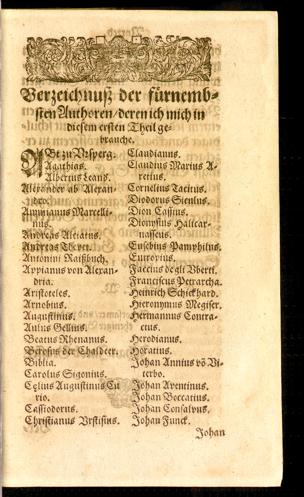 Verzeichnuß der fürnemb-
sten Authoren / deren ich mich in
diesem ersten Theil ge-
brauche.
Abt zu Vrsperg.
Agathias.
Albertus
Alexander ab Alexan-
dro.
Ammianus Marcelli-
nus.
Andreas Alciatus.
Andreas Thevet.
Antonini Raißbuch.
Appianus von Alexan-
dria.
Aristoteles.
Arnobius.
Augustinus.
Aulus Gellius.
Beatus Rhenanus.
Berosus der Chaldeer.
Biblia.
Carolus Sigonius.
Cęlius Augustinus Cu
rio.
Cassiodorus.
Christianus Vrstisius.
Claudianus.
Claudius Marius A-
retius.
Cornelius Tacitus.
Diodorus Siculus.
Dion Cassius.
Dionysius Halicar-
nasseus.
Eusebius Pamphilus.
Eutropius.
Faccius degli Vberti.
Franciscus Petrarcha.
Heinrich Schickhard.
Hieronymus Megiser.
Hermannus Contra-
ctus.
Herodianus.
Horatius.
Johan Annius vō Vi-
terbo.
Johan Aventinus.
Johan Boccatius.
Johan Consalvus.
Johan Funck.
Johan